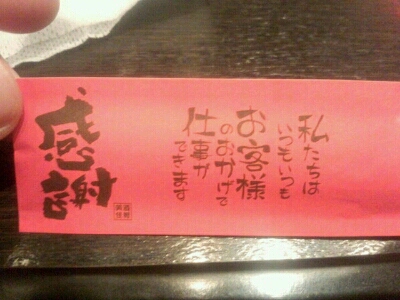 私たちは
いつもいつも
お客様
のおかげで
仕事が
できます
感謝